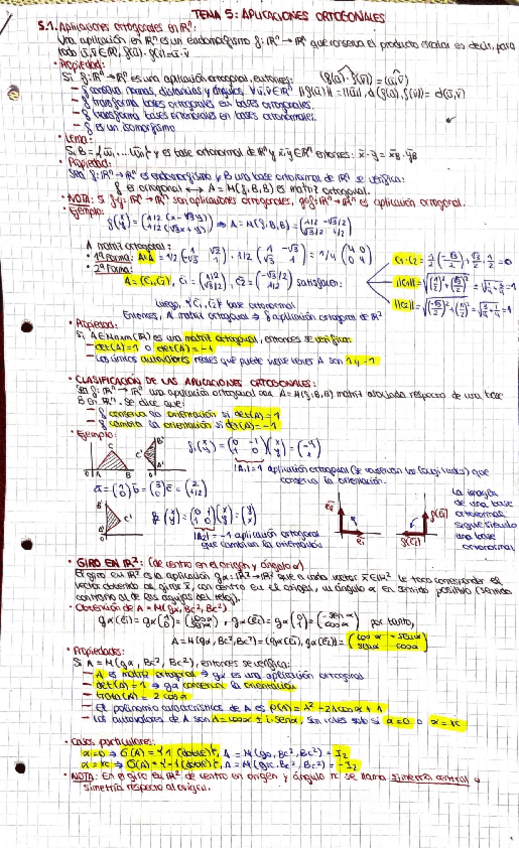 TEMA 5: APLICACIONES ORTOGONALES
5.1. Aplicaciones ortogonales en ℝⁿ:
Una aplicación en ℝⁿ es un endomorfismo f: ℝⁿ → ℝⁿ que conserva el producto escalar es decir, para
todo ū, v̄ ∈ ℝⁿ, f(ū)·f(v̄) = ū·v̄
• Propiedad:
Si f: ℝⁿ → ℝⁿ es una aplicación ortogonal, entonces:
— f conserva normas, distancias y ángulos, ∀ū, v̄ ∈ ℝⁿ ||f(ū)|| = ||ū||, d(f(ū), f(v̄)) = d(ū, v̄)
— f transforma bases ortogonales en bases ortogonales.
— f transforma bases ortonormales en bases ortonormales.
— f es un isomorfismo
• Lema:
Si B = {ū₁, ... ūₙ} es base ortonormal de ℝⁿ y x̄, ȳ ∈ ℝⁿ entonces: x̄·ȳ = x̄B·ȳB
• Propiedad:
Sea f: ℝⁿ → ℝⁿ endomorfismo y B una base ortonormal de ℝⁿ se verifica:
f es ortogonal ↔ A = M(f, B, B) es matriz ortogonal.
• NOTA: Si f, g: ℝⁿ → ℝⁿ son aplicaciones ortogonales, g∘f: ℝⁿ → ℝⁿ es aplicación ortogonal.
• Ejemplo:
A matriz ortogonal:
• 1ª Forma:
• 2ª Forma:
A = (C₁, C₂), C₁ = (1/2 √3/2), C₂ = (-√3/2 1/2) satisfacen:
Luego, {C₁, C₂} base ortonormal
Entonces, A matriz ortogonal ⇒ f aplicación ortogonal de ℝ²
• Propiedad:
Si A ∈ Mnxn(ℝ) es una matriz ortogonal, entonces se verifica:
— det(A) = 1 o det(A) = -1
— Los únicos autovalores reales que puede tener A son 1 y -1
• CLASIFICACIÓN DE LAS APLICACIONES ORTOGONALES:
Sea f: ℝⁿ → ℝⁿ una aplicación ortogonal con A = M(f, B, B) matriz asociada respecto de una base
B de ℝⁿ. Se dice que:
— f conserva la orientación si det(A) = 1
— f cambia la orientación si det(A) = -1
• Ejemplo:
|A₁| = 1 aplicación ortogonal que
conserva la orientación.
|A₂| = -1 aplicación ortogonal
que cambia la orientación
La imagen
de una base
ortonormal
sigue siendo
una base
ortonormal
• GIRO EN ℝ²: (de centro en el origen y ángulo α)
El giro en ℝ² es la aplicación gα: ℝ² → ℝ² que a cada vector x̄ ∈ ℝ² le hace corresponder el
vector obtenido al girar x̄, con centro en el origen, un ángulo α en sentido positivo (sentido
contrario al de las agujas del reloj).
• Obtención de A = M(gα, Bc², Bc²)
por tanto,
A = M(gα, Bc², Bc²) = (gα(ē₁), gα(ē₂)) = (cos α -sen α sen α cos α)
• Propiedades:
Si A = M(gα, Bc², Bc²), entonces se verifica:
— A es matriz ortogonal ⇒ gα es una aplicación ortogonal
— det(A) = 1 ⇒ gα conserva la orientación
— traza(A) = 2 cos α
— El polinomio característico de A es P(λ) = λ² - 2λ cos α + 1
— Los autovalores de A son λ = cos α ± i·sen α, son reales solo si α = 0 o α = π
• Casos particulares:
α = 0 ⇒ σ(A) = {1 (doble)}, A = M(g₀, Bc², Bc²) = I₂
α = π ⇒ σ(A) = {-1 (doble)}, A = M(gπ, Bc², Bc²) = -I₂
• NOTA: En el giro en ℝ² de centro en origen y ángulo π se llama simetría central o
simetría respecto al origen.